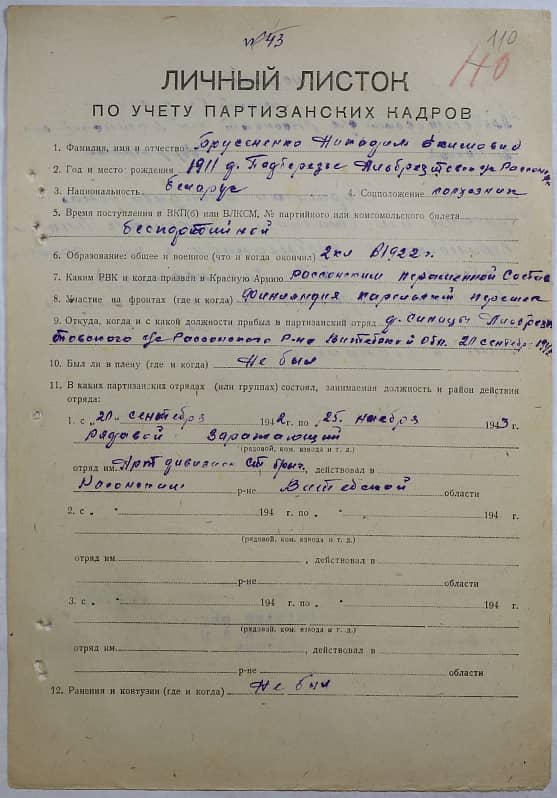 № 43
110
110
ЛИЧНЫЙ ЛИСТОК
ПО УЧЕТУ ПАРТИЗАНСКИХ КАДРОВ
1. Фамилия, имя и отчество
2. Год и место рождения 1911 д. Подберезье
3. Национальность Беларус 4. Соцположение колхозник
5. Время поступления в ВКП(б) или ВЛКСМ, № партийного или комсомольского билета
Беспортийной
6. Образование: общее и военное (что и когда окончил) 2 кл в 1922 г.
7. Каким РВК и когда призван в Красную Армию Россонским Состав
8. Участие на фронтах (где и когда) Финляндия
9. Откуда, когда и с какой должности прибыл в партизанский отряд д. Синицы
с/с Россонского р-на Витебской Обл. 21 сентебр
10. Был ли в плену (где и когда) Не был
11. В каких партизанских отрядах (или группах) состоял, занимаемая должность и район действия
отряда:
1. с „21„ сентебря 1942 г. по „25„ ноебря 1943 г.
Рядавой Заражающий
(рядовой, ком. взвода и т. д.)
отряд им. Арт дивизион , действовал в
Расонским р-не Витебской области
2. с „ “ 194 г. по „ “ 194 г.
(рядовой, ком. взвода и т. д.)
отряд им. , действовал в
р-не области
3. с „ “ 194 г. по „ “ 194 г.
(рядовой, ком. взвода и т. д.)
отряд им. , действовал в
р-не области
12. Ранения и контузии (где и когда) Не был